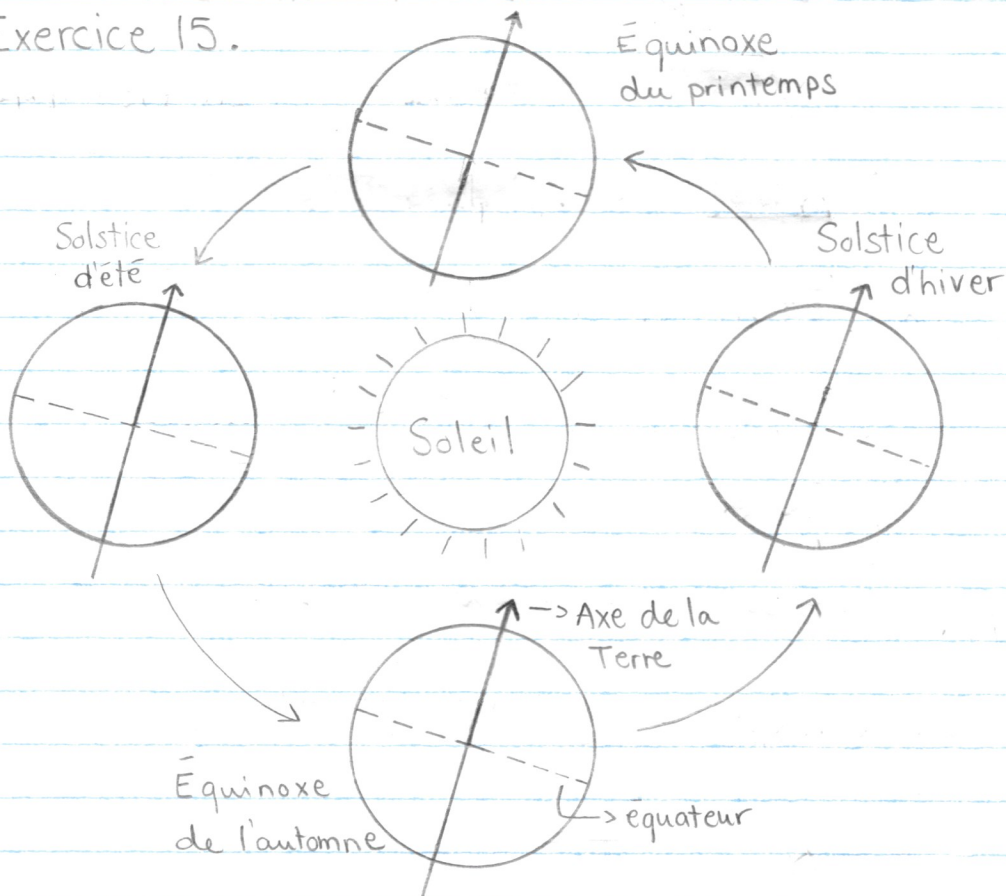 Exercice 15.
Équinoxe
du printemps
Solstice
d'été
Solstice
d'hiver
Soleil
Axe de la
Terre
Équinoxe
de l'automne
équateur